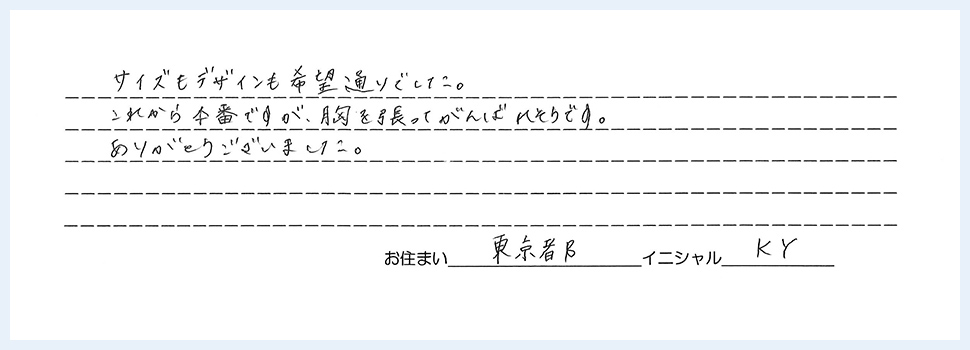 サイズもデザインも希望通りでした。
これから本番ですが、胸を張ってがんばれそうです。
ありがとうございました。
お住まい 東京都 イニシャル KY